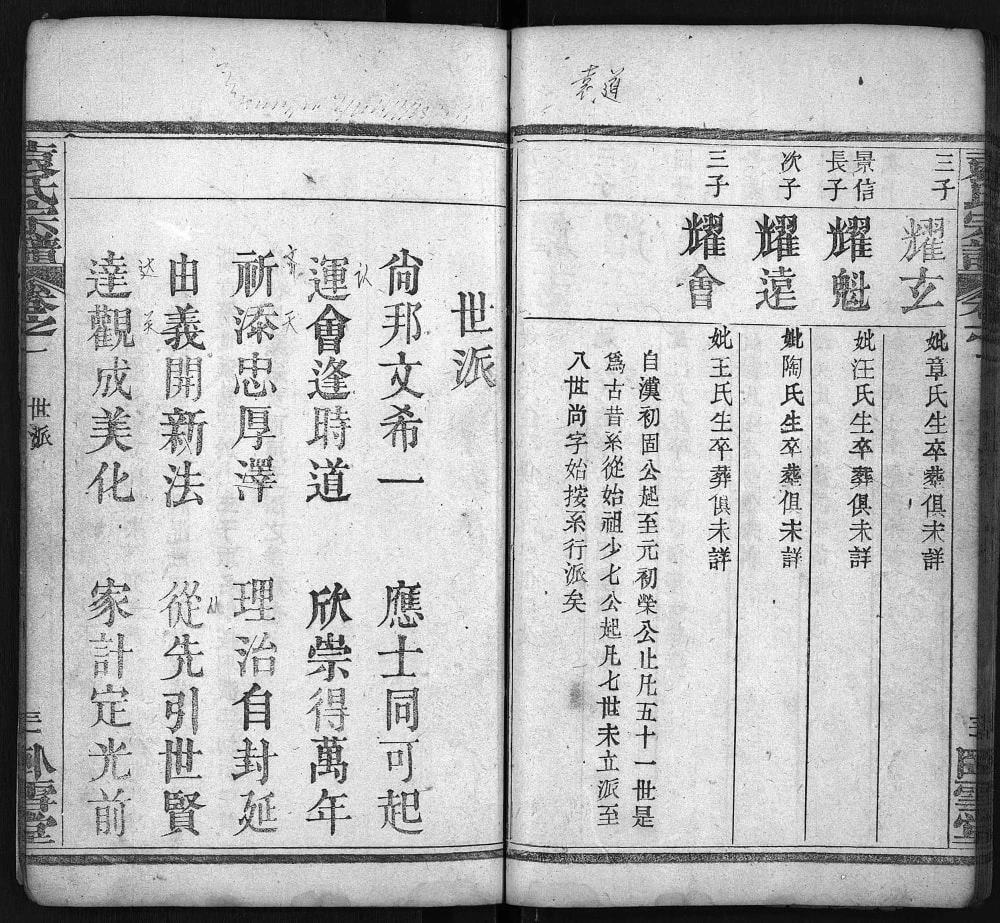 袁道
三子
耀玄
妣章氏生卒葬俱未詳
景信
長子
耀魁
妣汪氏生卒葬俱未詳
次子
耀遠
妣陶氏生卒葬俱未詳
三子
耀會
妣王氏生卒葬俱未詳
自漢初固公起至元初榮公止凡五十一世是
爲古昔系從始祖少七公起凡七世未立派至
八世尚字始按系行派矣
世派
尙邦文希一 應士同可起
運會逢時道 欣崇得萬年
祈添忠厚澤 理治自封延
由義開新法 從先引世賢
達觀成美化 家計定光前
袁氏宗譜
卷之一
世派
臥雪堂